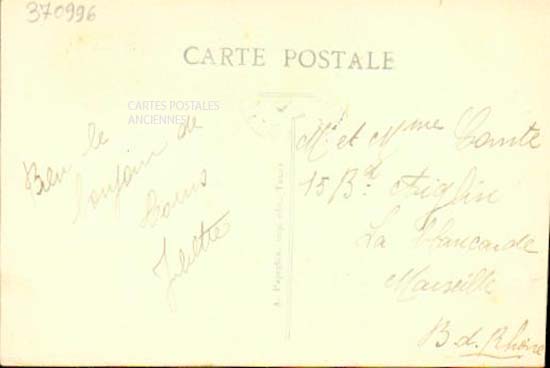 370996
CARTE POSTALE
CARTES POSTALES
ANCIENNES
Bien le
bonjour de
Tours
Juliette
Mr et Mme Comte
15 Bd Aiglin
La Blancarde
Marseille
B. d. Rhône